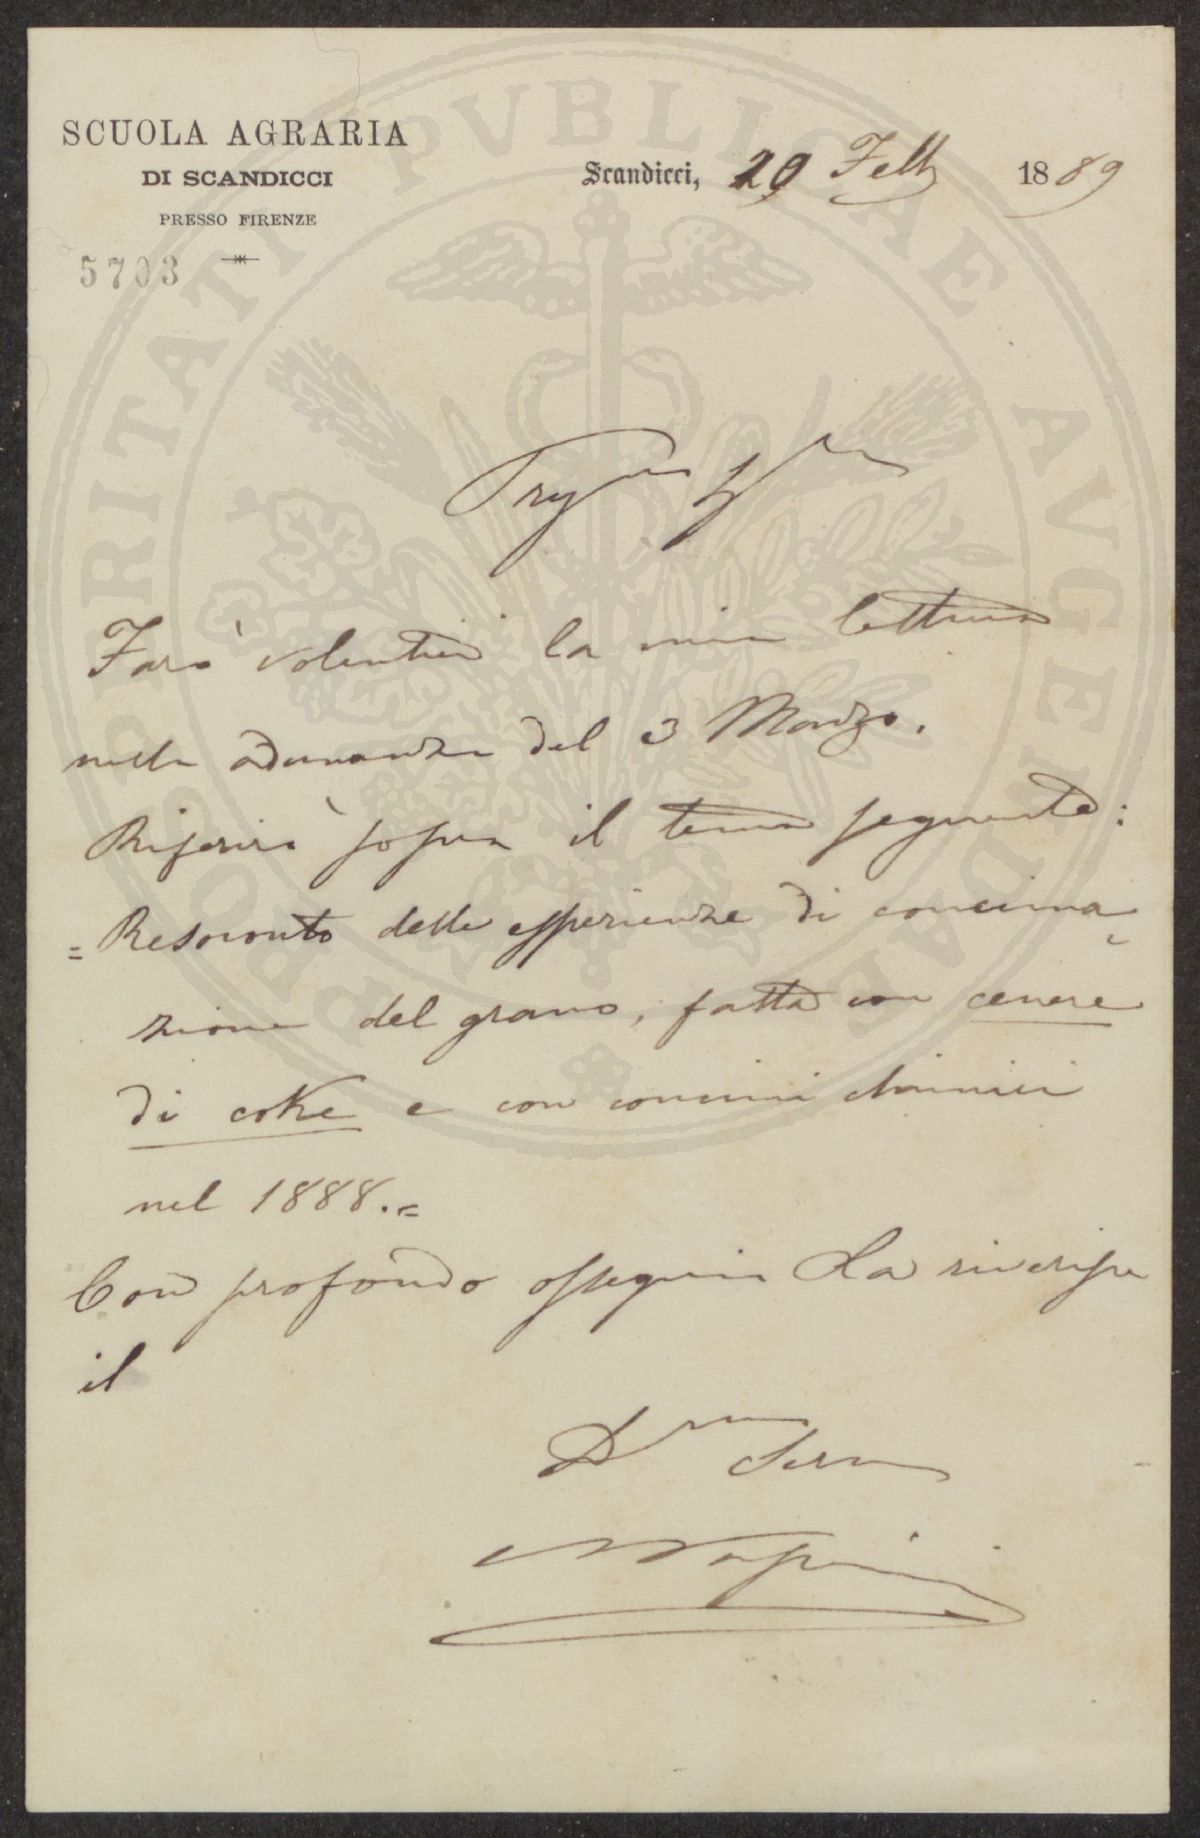 SCUOLA AGRARIA
DI SCANDICCI
PRESSO FIRENZE
5703
Scandicci, 20 Febb 1889
Farò volentieri la mia lettura
nella adunanza del 3 Marzo.
Riferirò sopra il tema seguente:
= Resoconto delle esperienze di concima
zione del grano, fatte con cenere
di coke e con concimi chimici
nel 1888. =
Con profondo ossequio La riverisce
il
PROSPERITATI PVBLICAE AVGENDAE